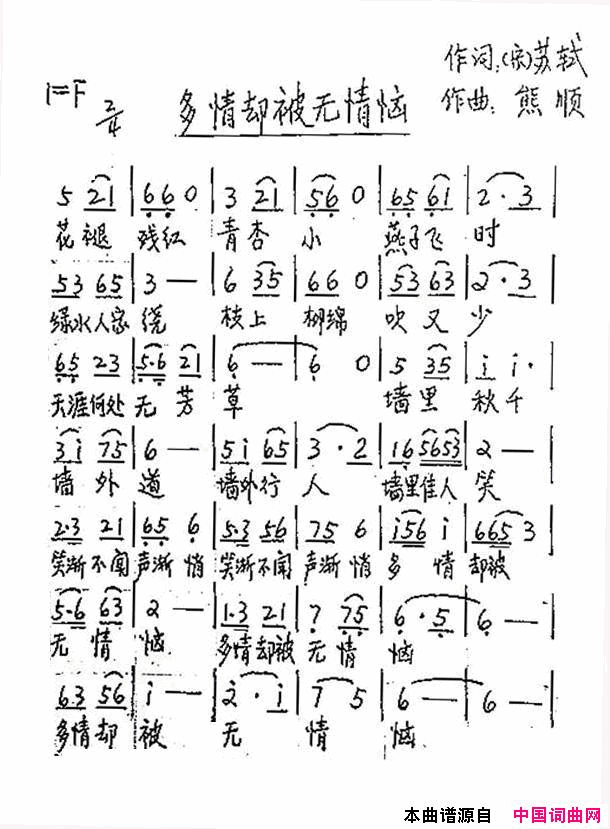 作词:(宋)苏轼
1=F 2/4 多情却被无情恼 作曲: 熊顺
5 21 | 66 0 | 3 21 | 56 0 | 65 61 | 2·3 |
花褪 残红 青杏 小 燕子飞 时
53 65 | 3 — | 6 35 | 66 0 | 53 63 | 2·3 |
绿水人家 绕 枝上 柳绵 吹又 少
65 23 | 5·6 21 | 6 — | 6 0 | 5 35 | i i· |
天涯何处 无芳 草 墙里 秋千
3i 75 | 6 — | 5i 65 | 3·2 | 16 5653 | 2 — |
墙外 道 墙外行 人 墙里佳人 笑
2·3 21 | 65 6 | 5·3 56 | 75 6 | i56 i | 665 3 |
笑渐不闻 声渐悄 笑渐不闻 声渐悄 多情 却被
5·6 63 | 2 — | 1·3 21 | 7 75 | 6·5 | 6 — |
无情 恼 多情却被 无情 恼
6·3 56 | i — | 2·i | 7 5 | 6 — | 6 — |
多情却 被 无 情 恼
本曲谱源自 中国词曲网